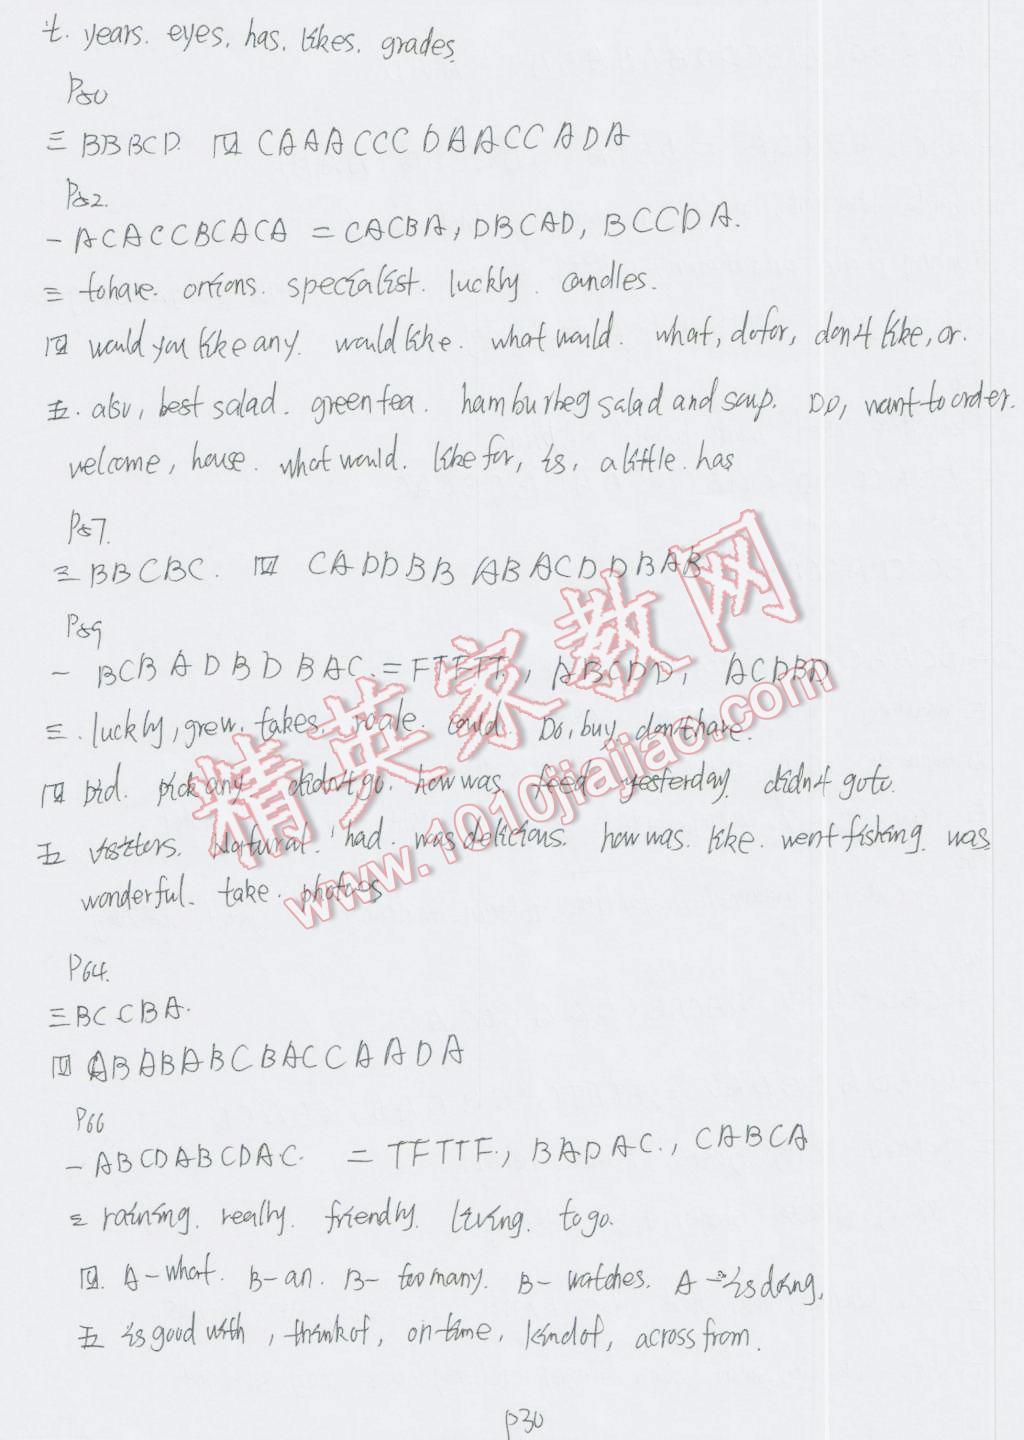 七. years. eyes, has. likes. grades.
P50
三 BBBCD. 四 CAAACCC DAACC ADA
P52.
一 ACACCBCACA 二 CACBA, DBCAD, BCCDA.
三 tohave. onions. specialist. luckly. candles.
四 would you like any. would like. what would. what, dofor, don't like, or.
五. also, best salad. green tea. hamburbeg salad and soup. DO, want to order.
welcome, house. what would. like for, is, a little. has
P57.
三 BBCBC. 四 CADDBB ABACDDBAB
P59
一 BCBADBDBAC. 二 FTFTT, ABCDD, ACDBD
三. luckly, grew. takes. scale. could. Do, buy, don't have.
四 Did. pick any didn't go. how was feed yesterday. didn't go to.
五 visitors. Natural. had. was delicious. how was. like. went fishing. was
wonderful. take. photoes
P64.
三 BCCBA.
四 ABABABCBACCAADA
P66
一 ABCDABCDAC. 二 TFTTF., BADAC., CABCA
三 raining. really. friendly. living. to go.
四. A-what. B-an. B- too many. B- watches. A - is doing,
五 is good with, think of, on time, kind of, across from.
P30
精英家教网
www.1010jiajiao.com